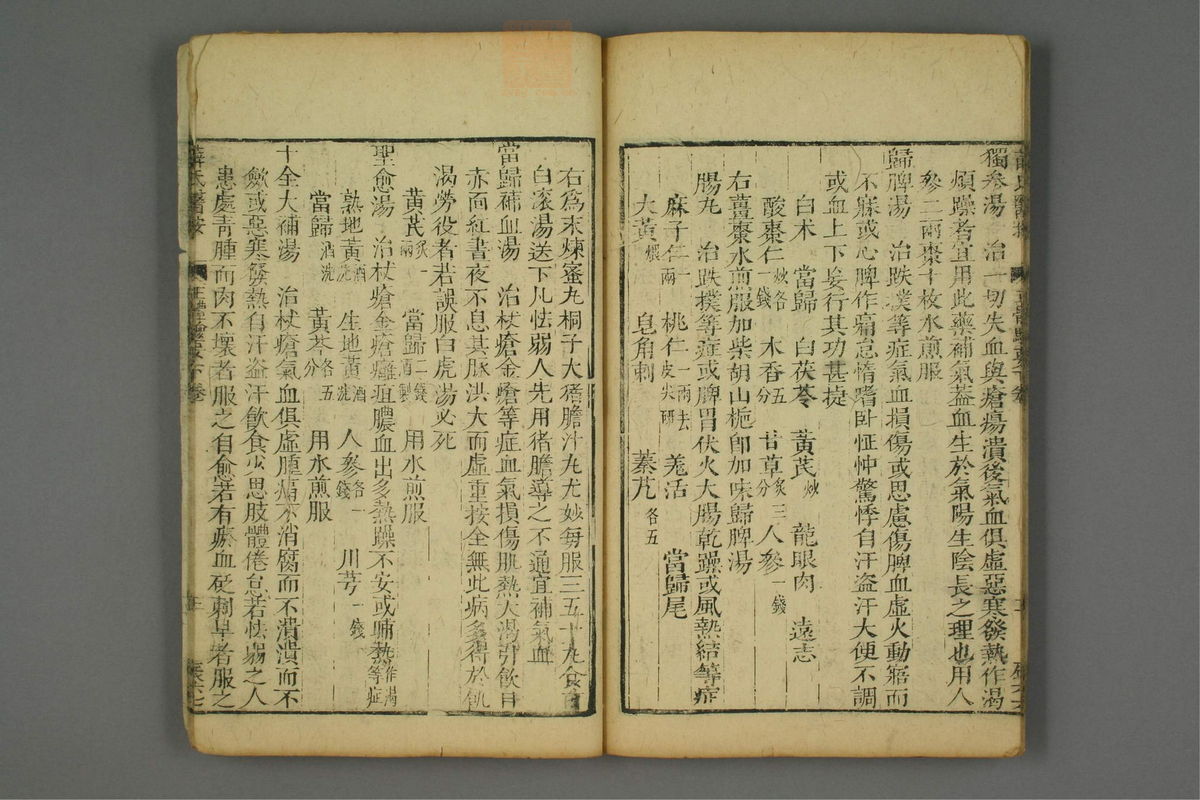 獨參湯　治一切失血與瘡瘍潰後氣血俱虛惡寒發熱作渴
煩躁者宜用此藥補氣蓋血生於氣陽生陰長之理也用人
參二兩棗十枚水煎服
歸脾湯　治跌撲等症氣血損傷或思慮傷脾血虛火動寤而
不寐或心脾作痛怠惰嗜卧怔忡驚悸自汗盜汗大便不調
或血上下妄行其功甚捷
白术　當歸　白茯苓　黃芪炒　龍眼肉　遠志
酸棗仁炒各一錢　木香五分　甘草炙三分　人參一錢
右薑棗水煎服加柴胡山梔即加味歸脾湯
腸丸　治跌撲等症或脾胃伏火大腸乾躁或風熱結等症
麻子仁一兩　桃仁一兩去皮尖研　羗活　當歸尾
大黃煨　皂角刺　蓁艽各五
右為末煉蜜丸桐子大猪膽汁丸尤妙每服三五十丸食前
白滚湯送下凡怯弱人先用猪膽導之不通宜補氣血
當歸補血湯　治杖瘡金瘡等症血氣損傷肌熱大渴引飲目
赤面紅晝夜不息其脉洪大而虛重按全無此病多得於飢
渴勞役者若誤服白虎湯必死
黃芪炙一兩　當歸二錢酒製　用水煎服
聖愈湯　治杖瘡金瘡癰疽膿血出多熱躁不安或晡熱作渴等症
熟地黃酒洗　生地黃酒洗　人參各一錢　川芎一錢
當歸酒洗　黃芩各五分　用水煎服
十全大補湯　治杖瘡氣血俱虛腫痛不消腐而不潰潰而不
斂或惡寒發熱自汗盜汗飲食少思肢體倦怠若怯弱之人
患處青腫而肉不壞者服之自愈若有瘀血砭刺早者服之
薛氏醫按　正體類要下卷